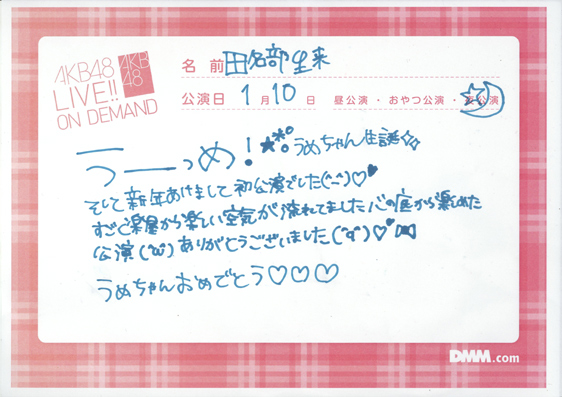 AKB48
LIVE!!
ON DEMAND
AKB
48
名 前 田名部生来
公演日 1月10日 昼公演・おやつ公演・夜公演
うーっめ! うめちゃん生誕☆☆
そして新年あけまして初公演でした(^-^)♡♥
すごく楽屋から楽しい空気が流れてました心の底から楽しめた
公演(^ω^)ありがとうございました(^з^)♡♥
うめちゃんおめでとう♡♡♡
DMM.com